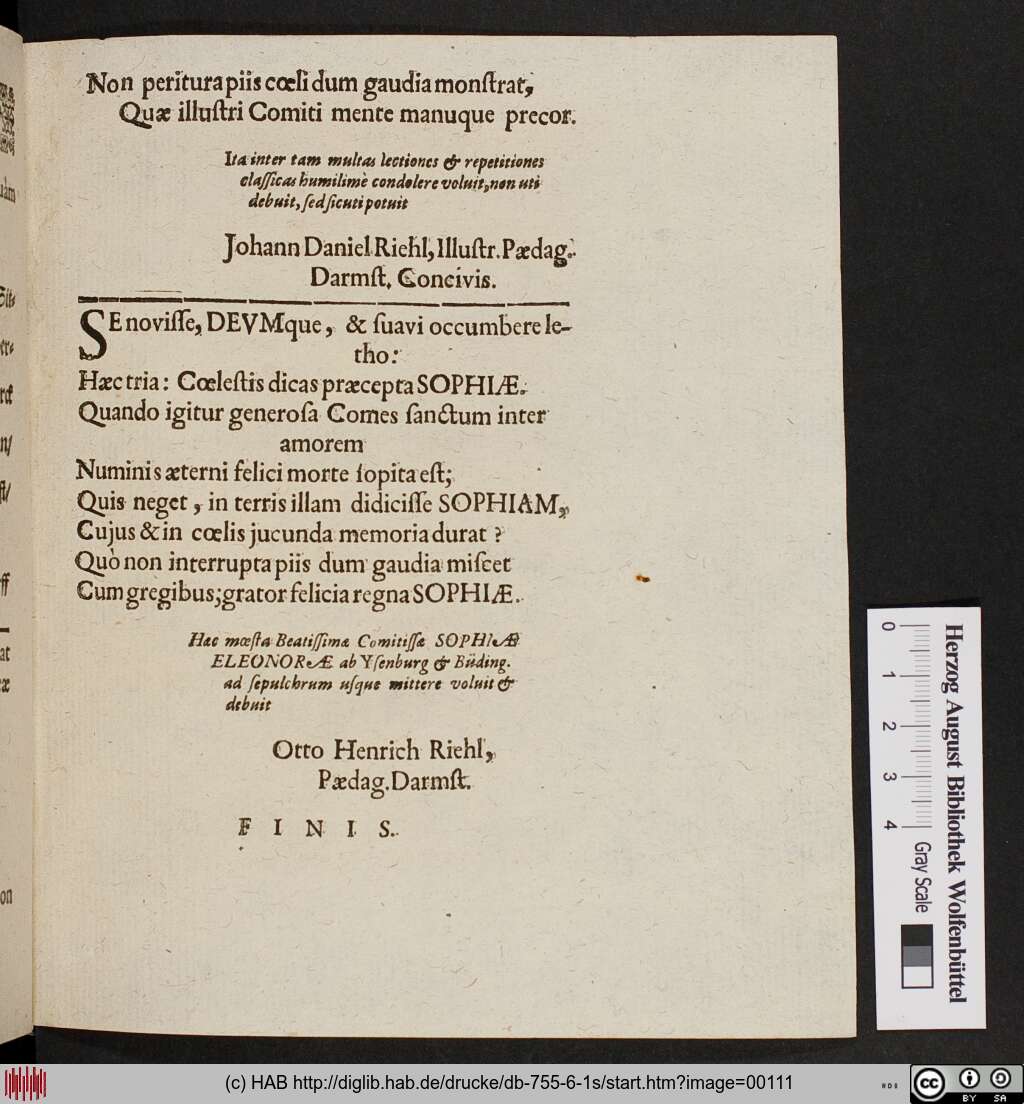 Non peritura piis cœli dum gaudia monſtrat,
Quæ illuſtri Comiti mente manuque precor.
Ita inter tam multas lectiones & repetitiones
claſſicas humilimè condolere voluit, non uti
debuit, ſed ſicuti potuit
Johann Daniel Riehl, Illuſtr. Pædag.
Darmſt. Concivis.
SE noviſſe, DEVMque, & ſuavi occumbere le-
tho:
Hæc tria: Cœleſtis dicas præcepta SOPHIÆ.
Quando igitur generoſa Comes ſanctum inter
amorem
Numinis æterni felici morte ſopita eſt;
Quis neget, in terris illam didiciſſe SOPHIAM,
Cujus & in cœlis jucunda memoria durat?
Quò non interrupta piis dum gaudia miſcet
Cum gregibus; grator felicia regna SOPHIÆ.
Hæc mœſta Beatiſſimæ Comitiſſæ SOPHIÆ
ELEONORÆ ab Yſenburg & Büding.
ad ſepulchrum uſque mittere voluit &
debuit
Otto Henrich Riehl,
Pædag. Darmſt.
FINIS.
Herzog August Bibliothek Wolfenbüttel
0 1 2 3 4 Gray Scale
(c) HAB http://diglib.hab.de/drucke/db-755-6-1s/start.htm?image=00111
cc BY SA